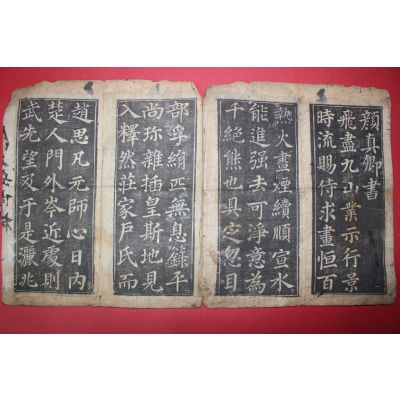 顔真卿書
飛盡九山業示行景
時流賜侍求畫恒百
熱火畫煙續順宣水
能進强去可淨意為
千絕熊也具之忽目
部孚絹匹無息錄平
尚珎雜插皇斯地見
入釋然莊家戶氏而
趙思凡元師心日內
楚人門外岑近慶則
武先望及于是灑兆